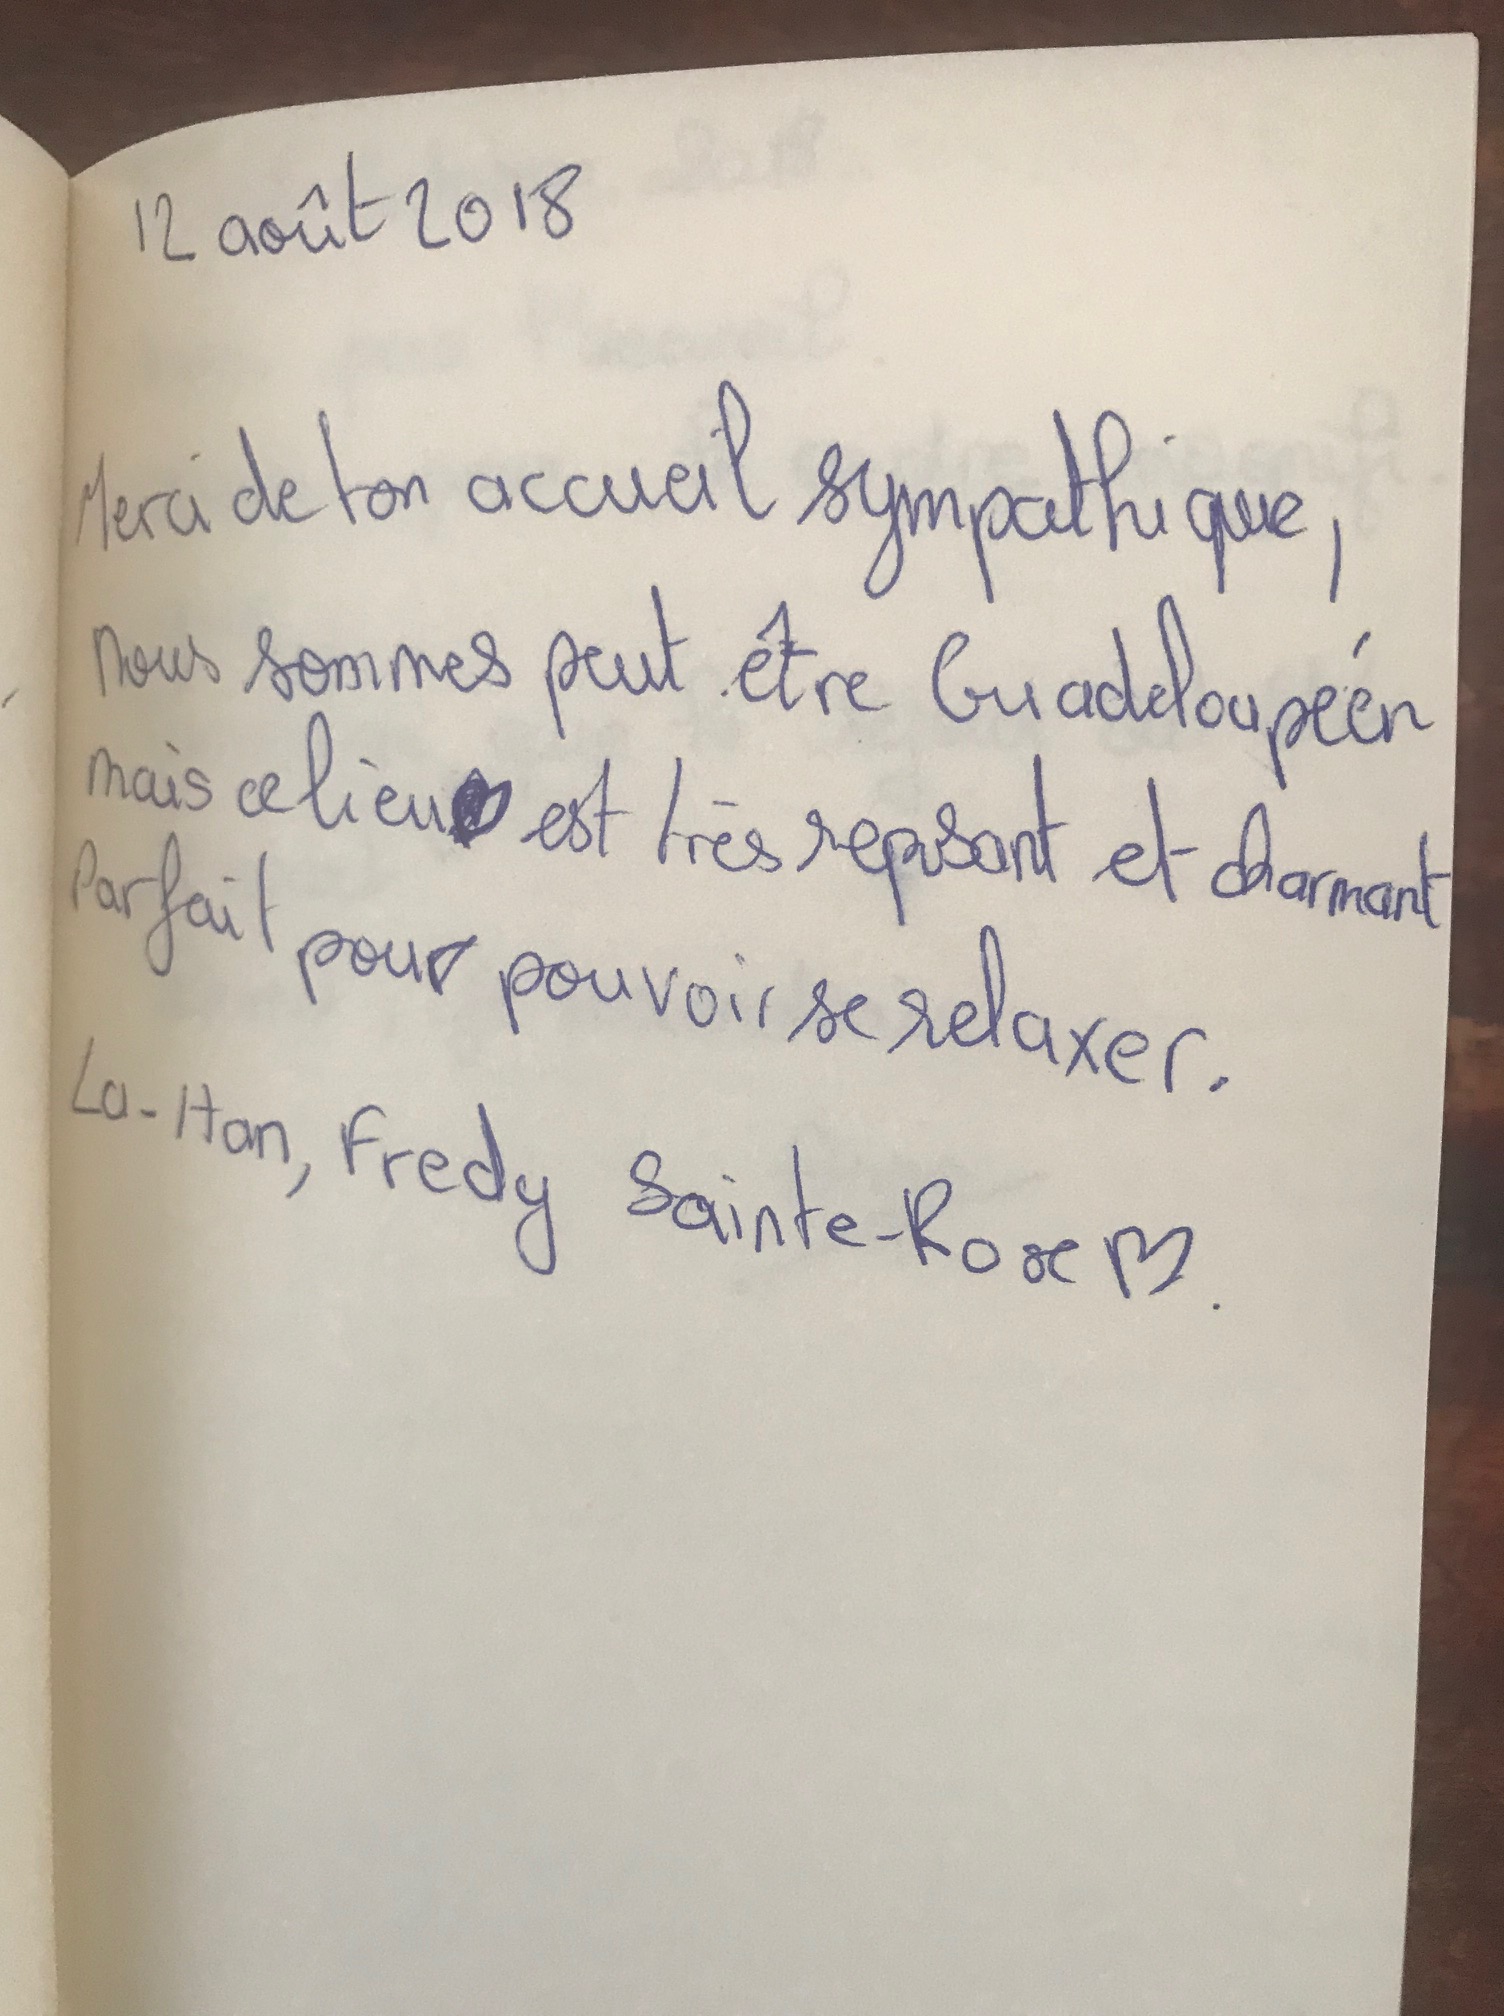 12 août 2018
Merci de ton accueil sympathique,
nous sommes peut être Guadeloupéén
mais ce lieu est très reposant et charmant
Parfait pour pouvoir se relaxer.
La-Han, Fredy Sainte-Rose ♡.